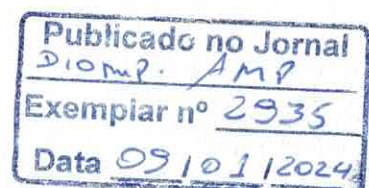 Publicado no Jornal
DIOMP. AMP
Exemplar nº 2935
Data 09/01/2024